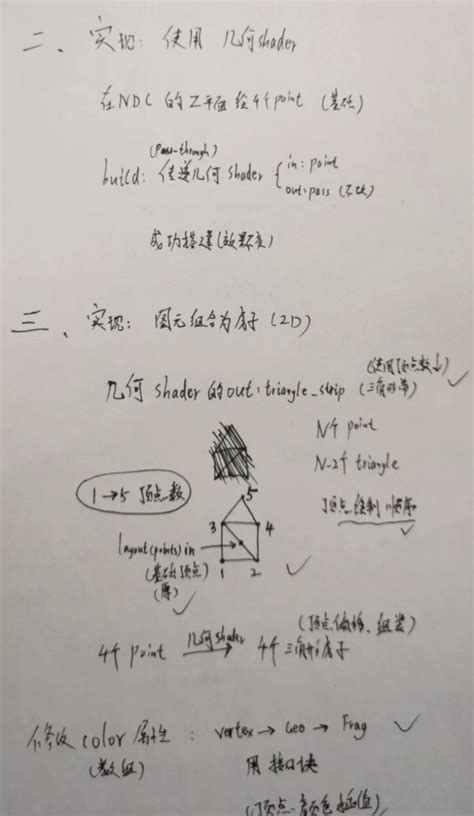 二、实现：使用 几何shader
在NDC 的 Z平面 绘4个point (基础)
(pass-through)
build: 传递几何 shader { in: point
out: pass (不改)
成功搭建(效果不变)
三、实现：图元组合为房子 (2D)
(使用顶点数↓)
几何 shader 的 out: triangle_strip (三角形带)
N个 point
N-2个 triangle
1→5 顶点数
顶点绘制顺序
5
3 4
layout(points) in
(基础顶点)
1 2
(原)
4个 point 几何shader → 4个三角形房子
(顶点偏移、组装)
修改 color 属性 : vertex → Geo → Frag
(数组) 用 接口块
(顶点-颜色插值)